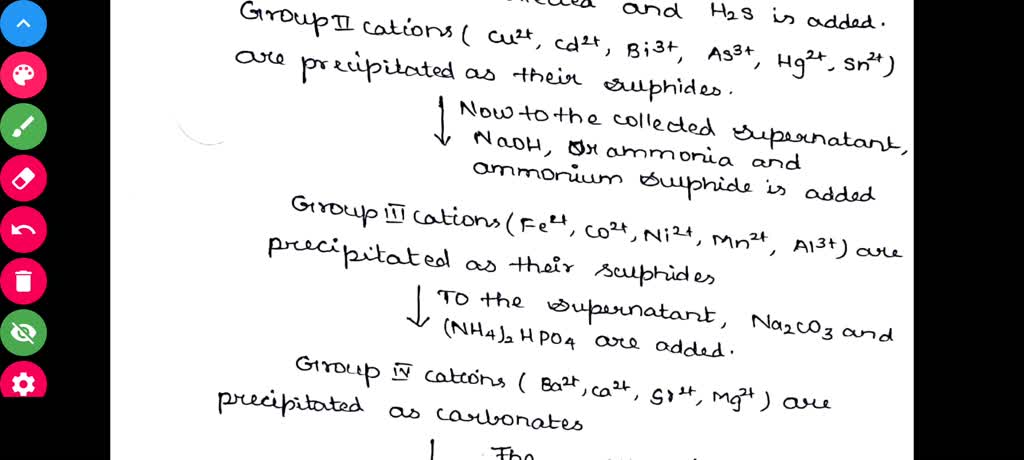 and H2S is added.
Group II cations ( Cu2+, Cd2+, Bi3+, As3+, Hg2+, Sn2+)
are precipitated as their sulphides.
↓ Now to the collected supernatant,
NaOH, or ammonia and
ammonium sulphide is added
Group III cations (Fe2+, Co2+, Ni2+, Mn2+, Al3+) are
precipitated as their sulphides
↓ To the supernatant, Na2CO3 and
(NH4)2HPO4 are added.
Group IV cations ( Ba2+, Ca2+, Sr2+, Mg2+) are
precipitated as carbonates